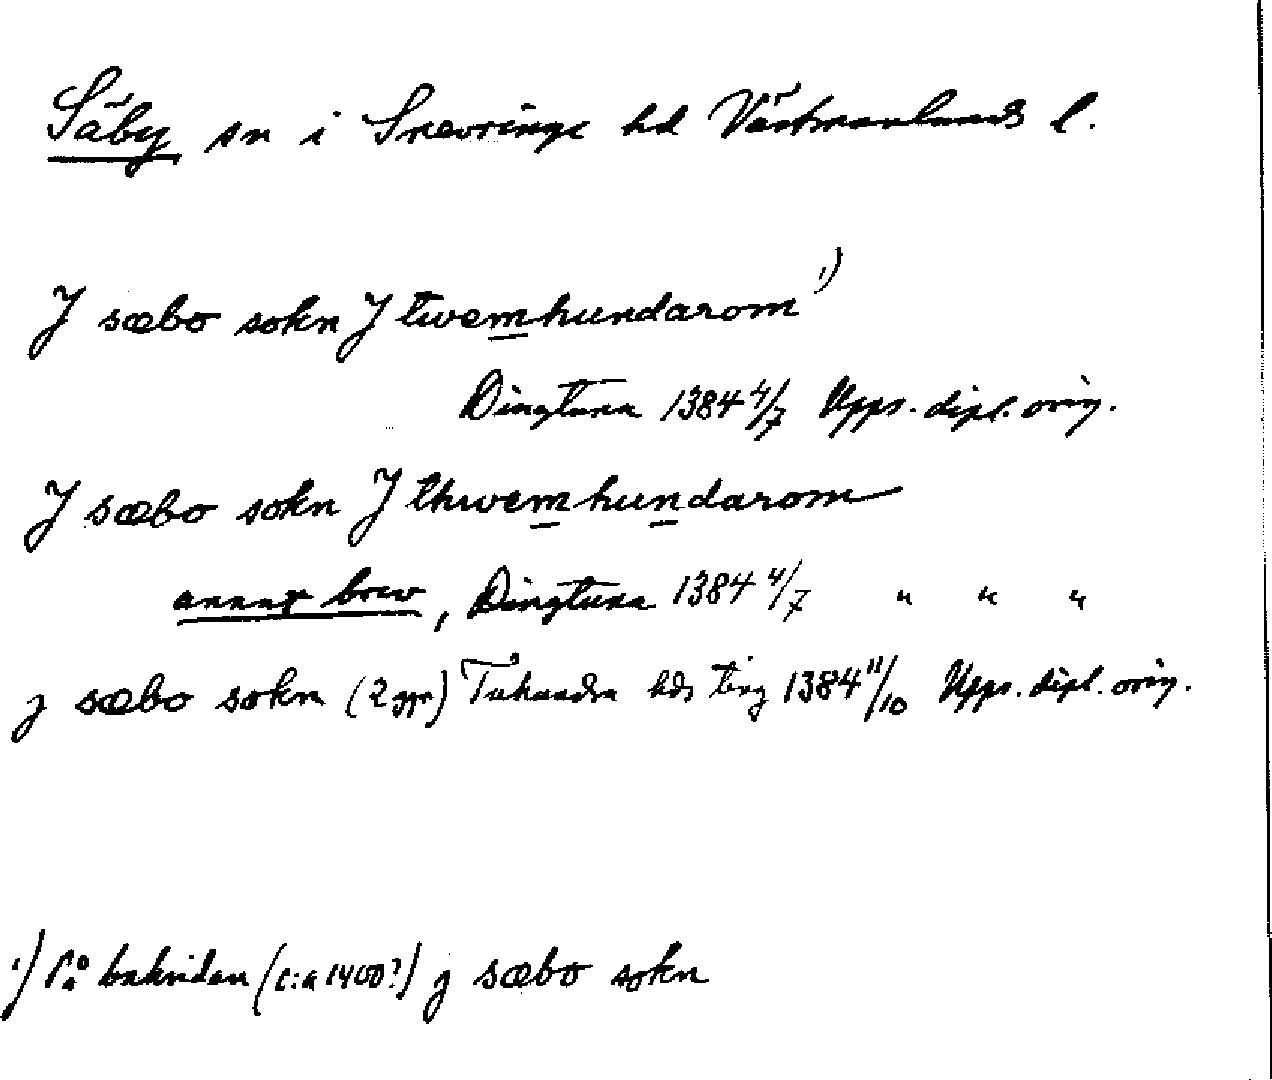 Säby sn i Snevringe hd Västmanlands l.
J sæbo sokn J twemhundarom ¹)
Dingtuna 1384 4/7 Upps. dipl. orig.
J sæbo sokn J thwemhundarom
annat brev, Dingtuna 1384 4/7 " " "
j sæbo sokn (2 ggr) Tuhundra hds ting 1384 11/10 Upps. dipl. orig.
¹) På baksidan (c:a 1400?) j sæbo sokn